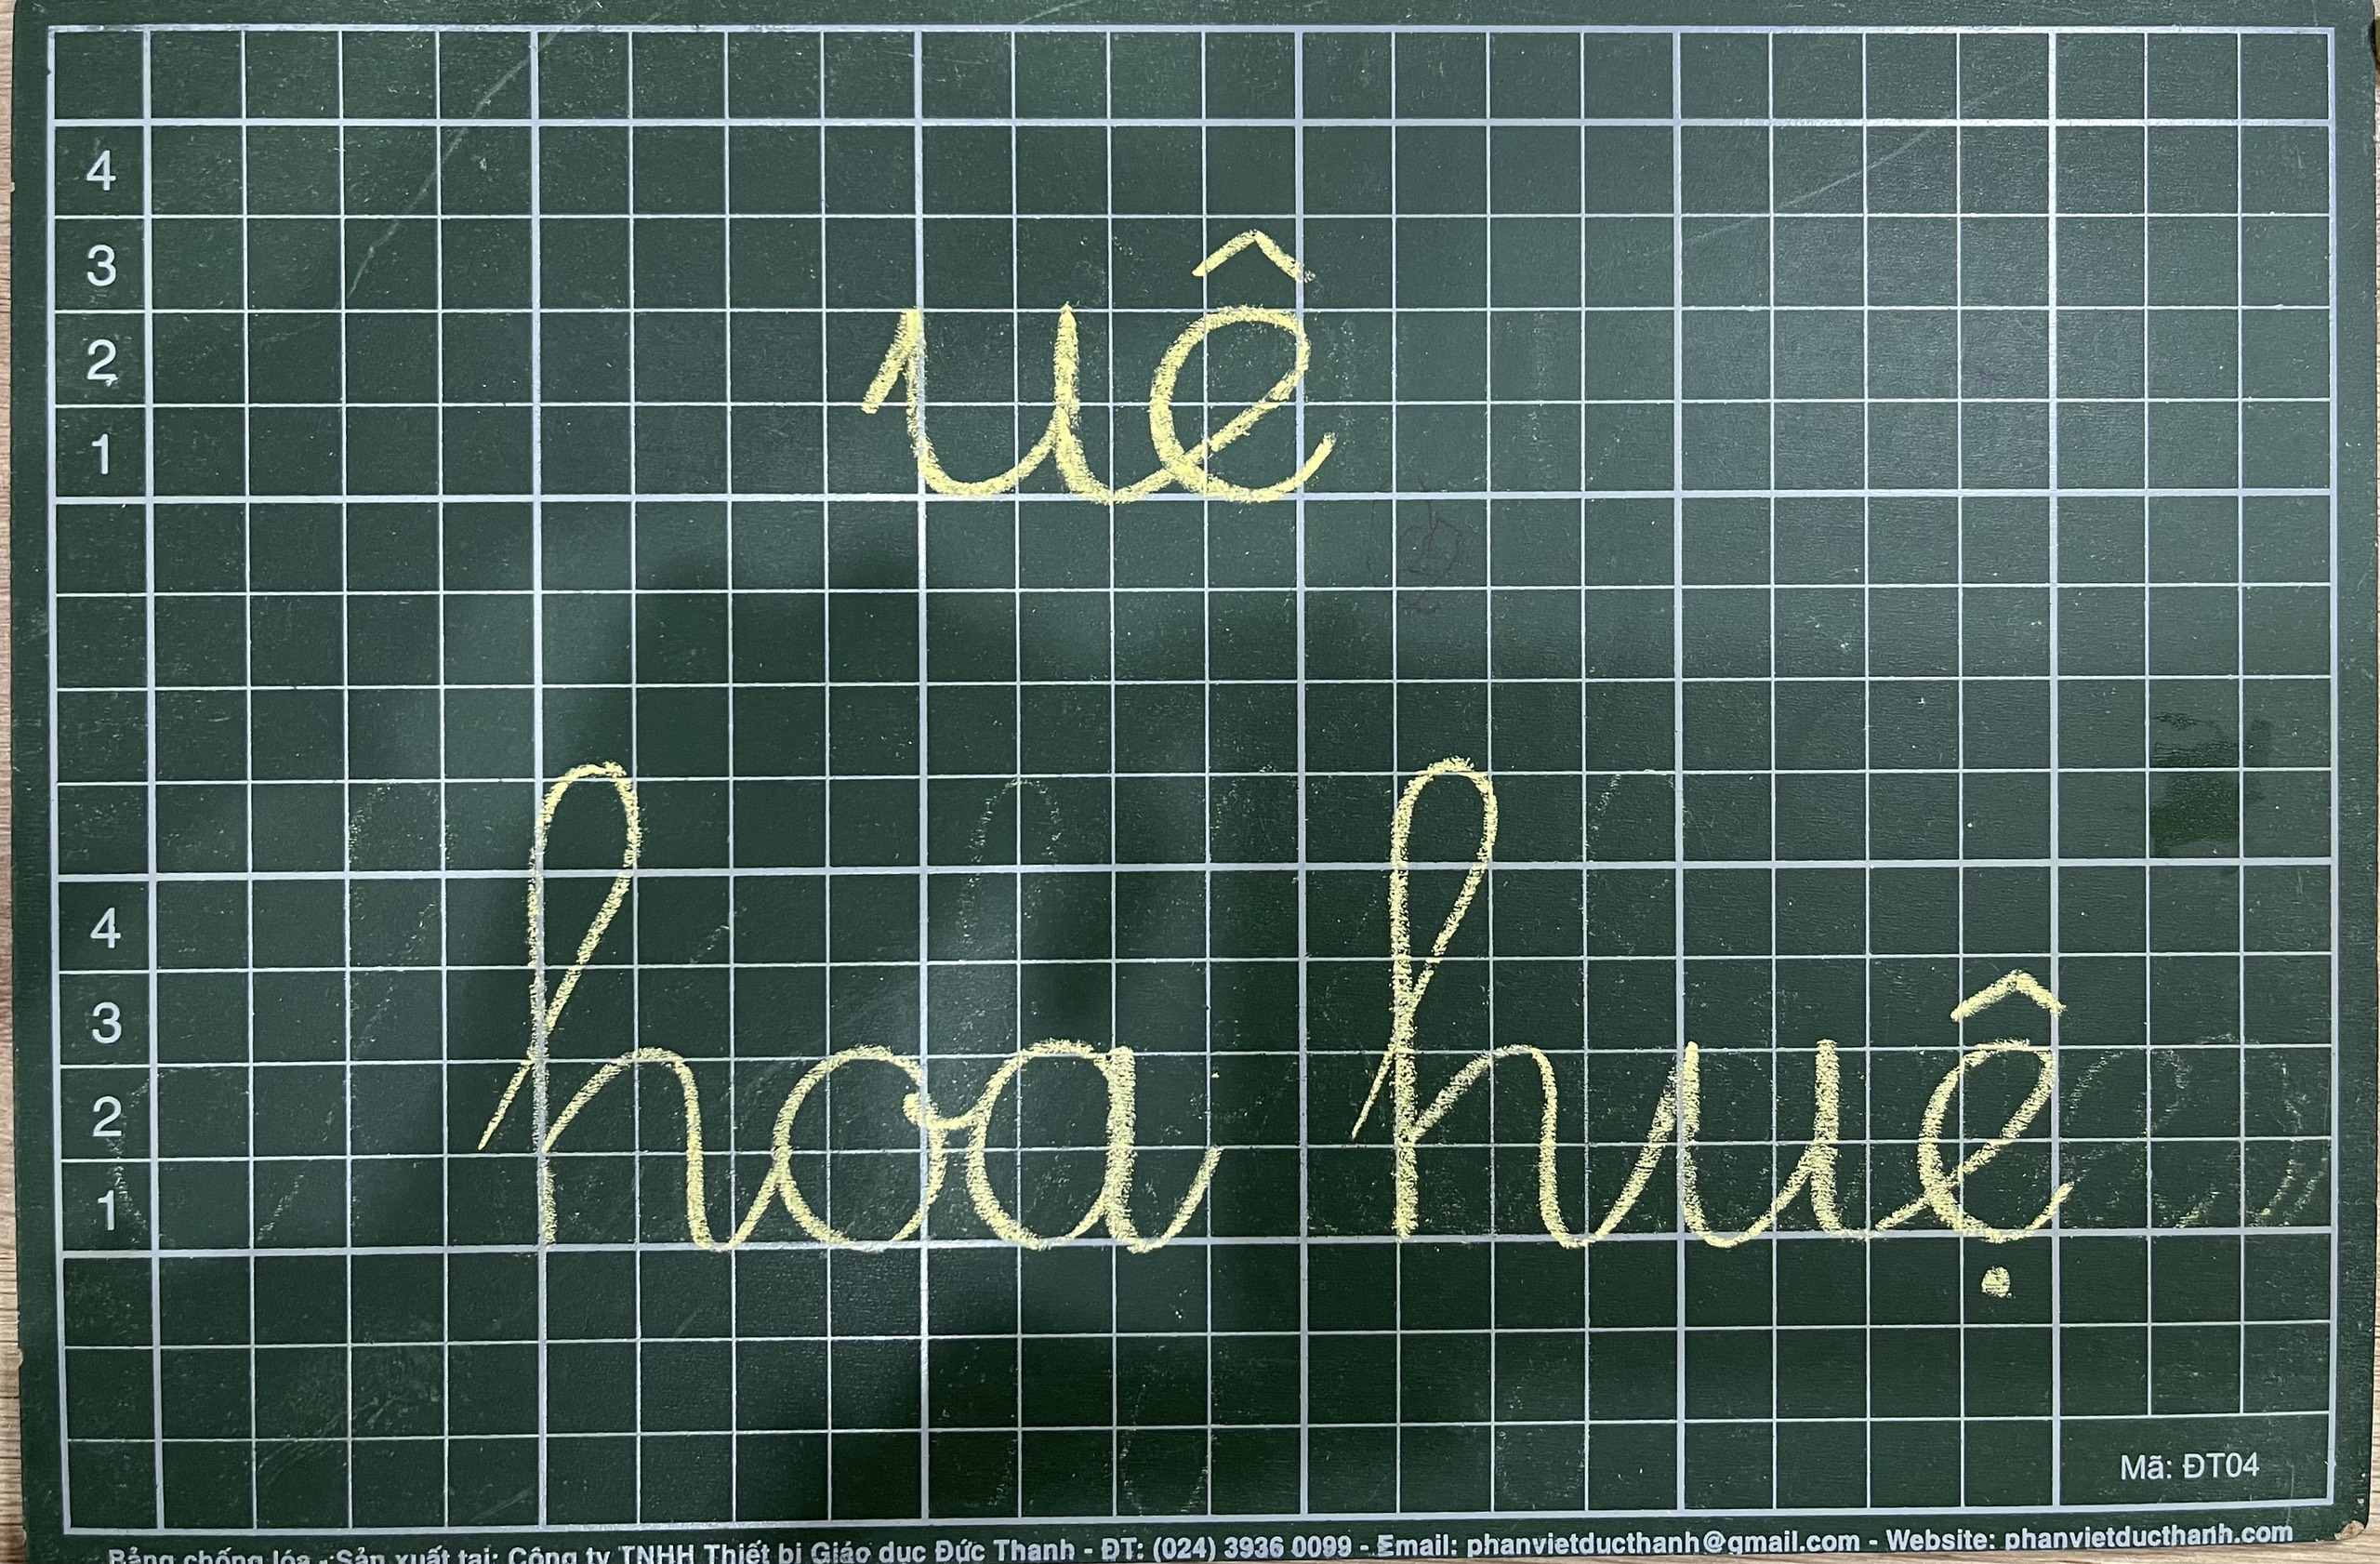 4
3
uê
2
1
4
3
hoa huệ
2
1
Mã: ĐT04
Bảng chống lóa - Sản xuất tại: Công ty TNHH Thiết bị Giáo dục Đức Thanh - ĐT: (024) 3936 0099 - Email: phanvietducthanh@gmail.com - Website: phanvietducthanh.com